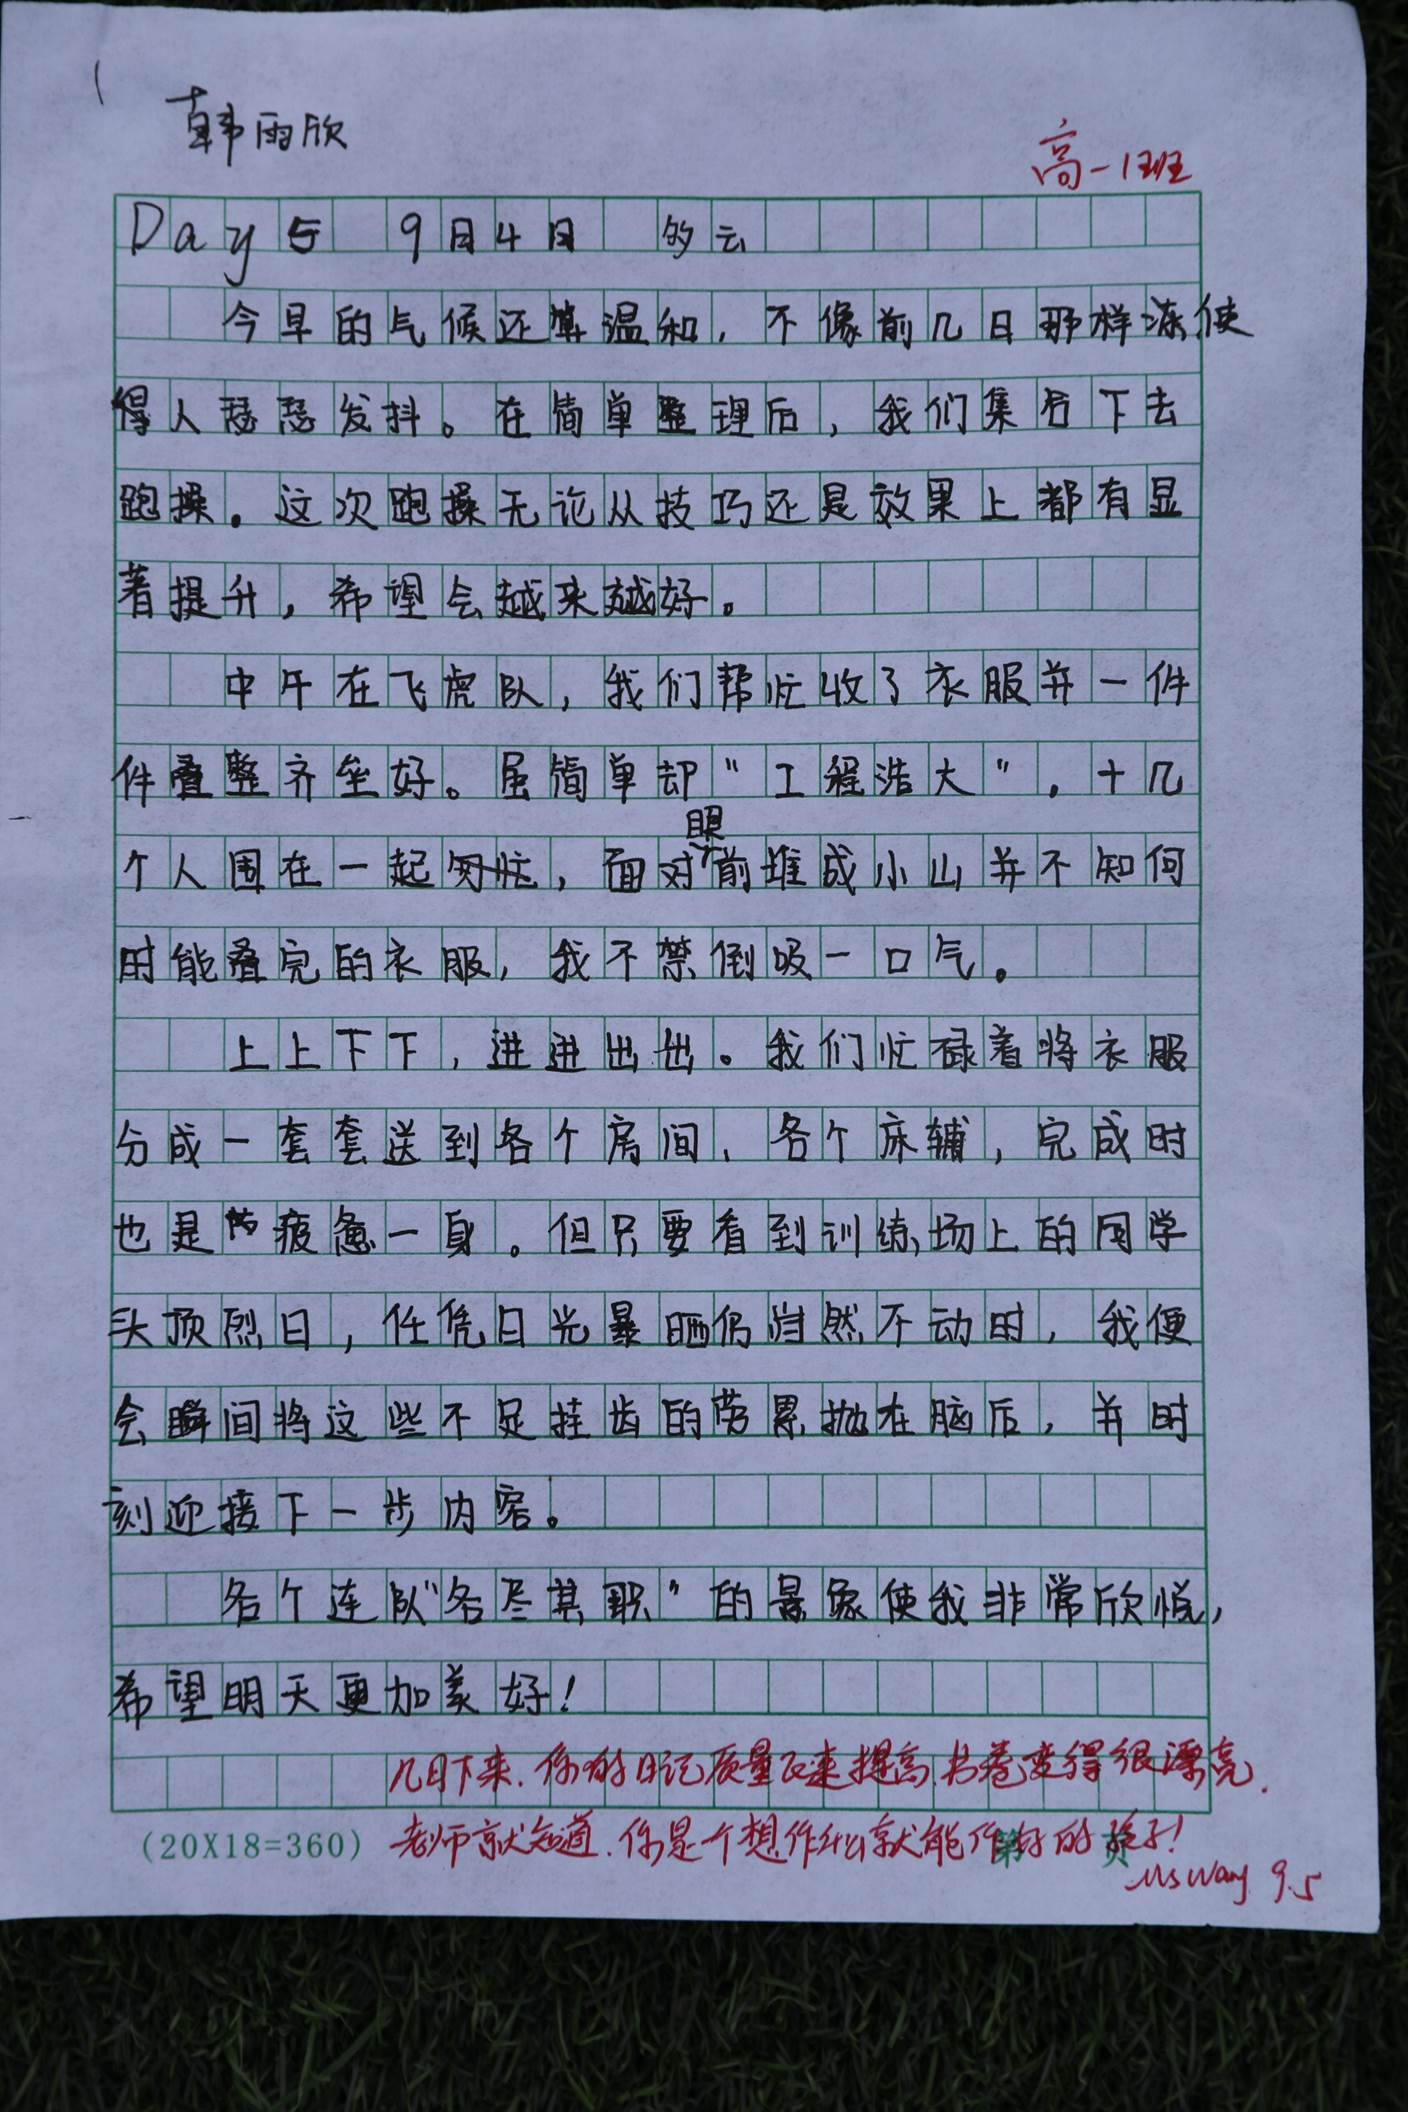 韩雨欣
高一1班
Day5 9月4日 多云
今早的气候还算温和，不像前几日那样冻使
得人瑟瑟发抖。在简单整理后，我们集合下去
跑操。这次跑操无论从技巧还是效果上都有显
著提升，希望会越来越好。
中午在飞虎队，我们帮忙收了衣服并一件
件叠整齐垒好。虽简单却“工程浩大”。十几
个人围在一起匆忙，面对眼前堆成小山并不知何
时能叠完的衣服，我不禁倒吸一口气。
上上下下，进进出出。我们忙碌着将衣服
分成一套套送到各个房间、各个床铺，完成时
也是疲惫一身。但只要看到训练场上的同学
头顶烈日，任凭日光暴晒仍岿然不动时，我便
会瞬间将这些不足挂齿的劳累抛在脑后，并时
刻迎接下一步内容。
各个连队“各尽其职”的景象使我非常欣悦，
希望明天更加美好！
几日下来，你的日记质量飞速提高，书卷变得很漂亮.
(20X18=360) 老师就知道，你是个想作什么就能作好的孩子！
第 页
Ms Wang 9.5